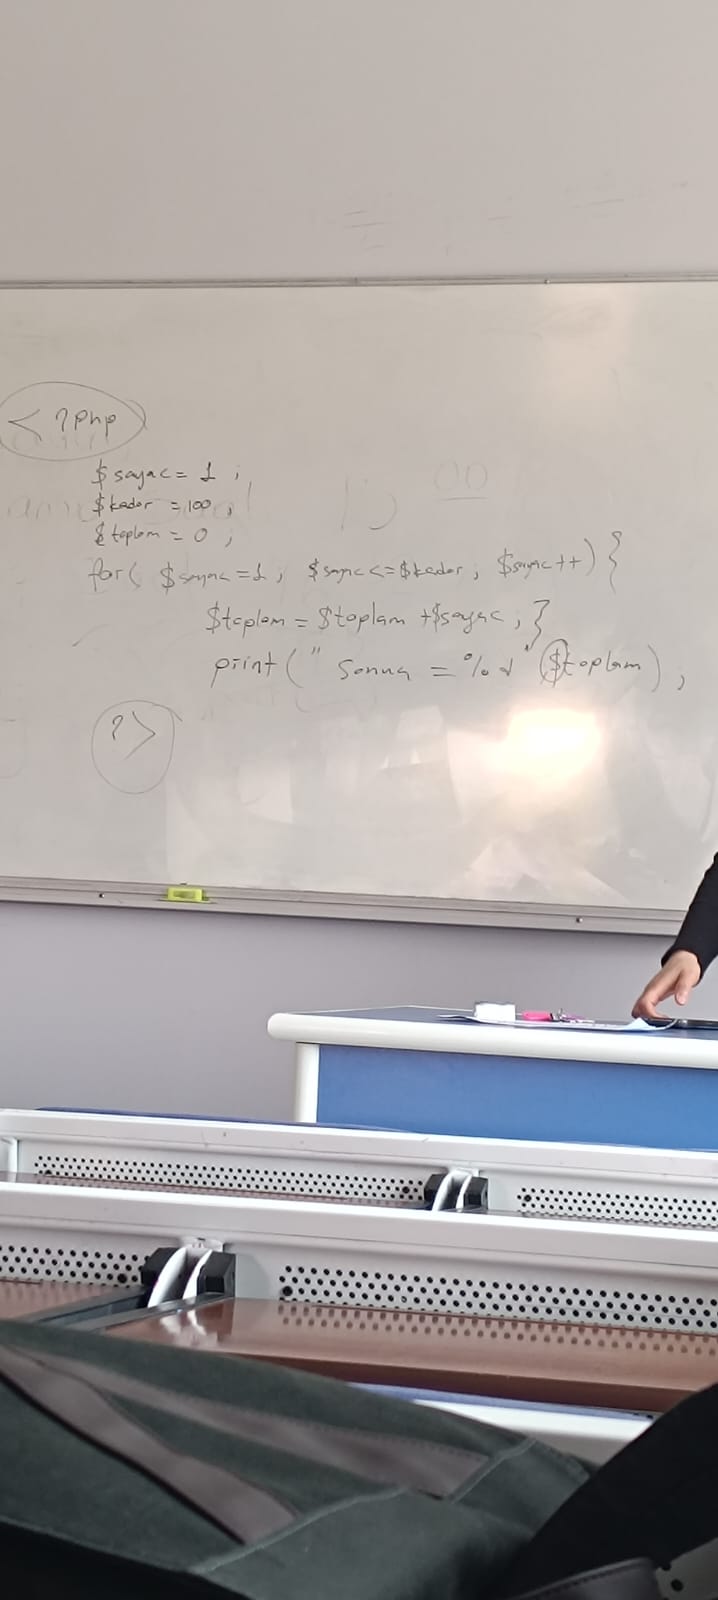 <?php
$sayac = 1;
$kadar = 100;
$toplam = 0;
for( $sayac=1; $sayac<=$kadar; $sayac++) {
$toplam = $toplam +$sayac; }
print(" Sonuç = %d" $toplam);
?>